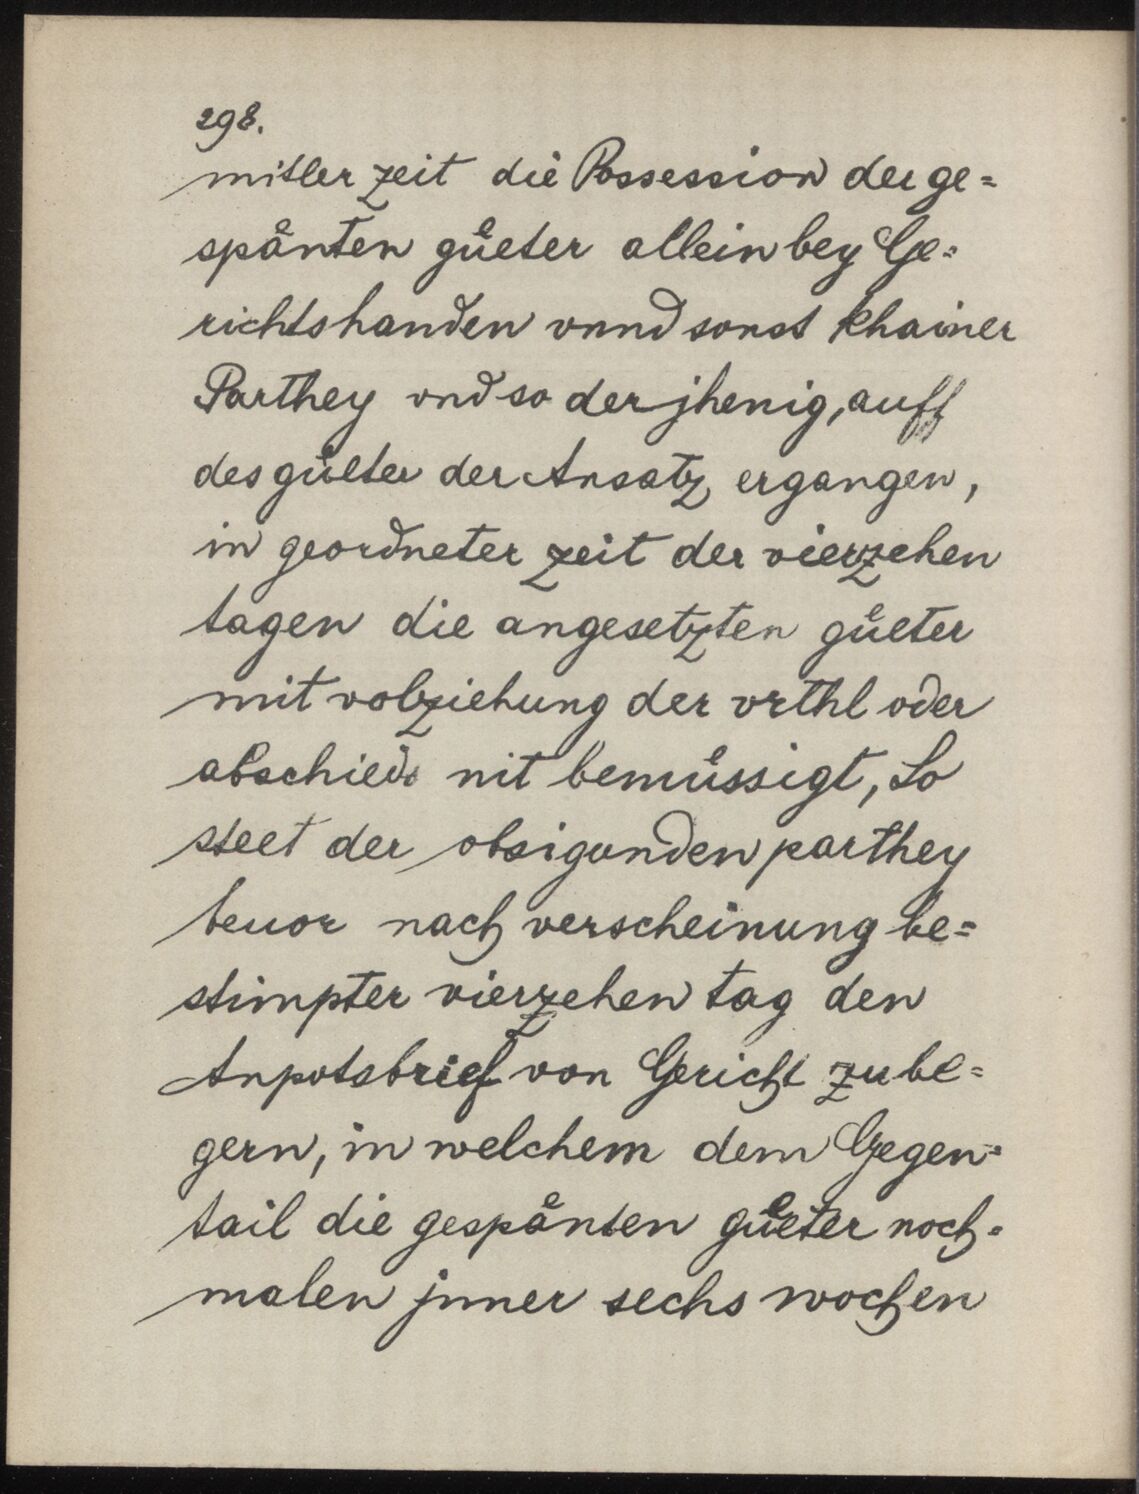 298.
mitler zeit die Possession der ge=
spånten gůeter allein bey Ge=
richtshanden vnnd sonst khainer
Parthey vnd so der jhenig, auff
des güeter der Ansatz ergangen,
in geordneter zeit der vierzehen
tagen die angesetzten gůeter
mit volziehung der vrthl oder
abschieds nit bemůssigt, So
steet der obsigunden parthey
beuor nach verscheinung be=
stimpter vierzehen tag den
Anpotsbrief von Gericht zu be=
gern, in welchem dem Gegen=
tail die gespånten gůeter noch=
malen jnner sechs wochen